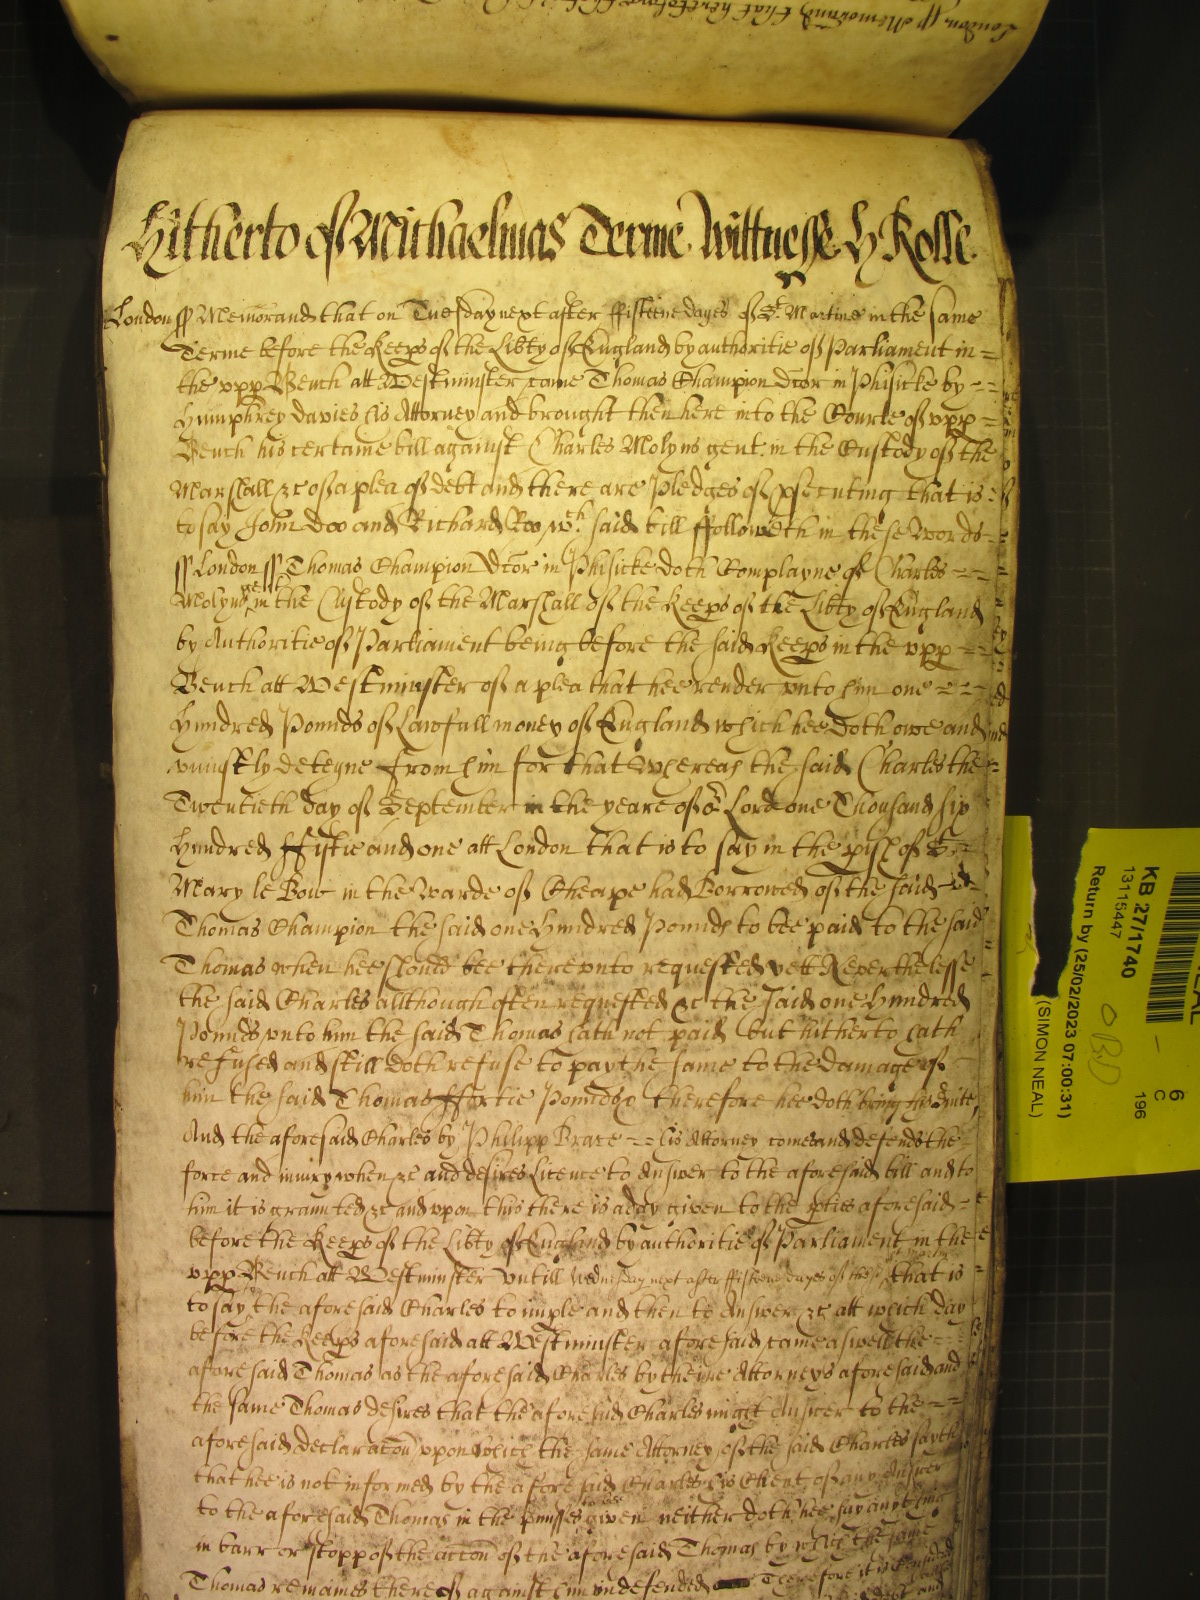 London ss Memorand that heretofore
Hitherto of Michaelmas Terme Wittnesse H Rolle
London ss Memorand that on Tuesday next after ffifteene dayes of St. Martine in the same
Terme before the Keeps of the Libty of England by authoritie of Parliament in =
the vpp Bench att Westminster came Thomas Champion Dcor in Phisicke by = =
Humphrey Davies his Attorney and brought then here into the Courte of vpp =
Bench his certaine bill against Charles Molyns gent. in the Custody of the
Marshall &c of a plea of debt and there are Pledges of psecuting that is =
to say John Doo and Richard Roo, wch. said bill ffolloweth in these Words =
ss London ss Thomas Champion Dcor in Phisicke doth Complayne of Charles = =
Molyns gent in the Custody of the Marshall of the Keeps of the Libty of England
by Authoritie of Parliament being before the said Keeps in the vpp = =
Bench att Westminster of a plea that hee render vnto him one = = =
Hundred Pounds of Lawfull money of England which hee doth owe and
vniustly deteyne from him for that Whereas the said Charles the
Twentieth day of September in the yeare of or Lord one Thousand six
Hundred ffiftie and one att London that is to say in the pish of St =
Mary le Bow in the Warde of Cheape had Borrowed of the said
Thomas Champion the said one Hundred Pounds to bee paid to the said
Thomas when hee should bee therevnto requested yett Neverthelesse
the said Charles allthough often requested &c the said one Hundred
Pounds vnto him the said Thomas hath not paid but hitherto hath
refused and still doth refuse to pay the same to the damage of
him the said Thomas ffortie Pounds & therefore hee doth bring his suite,
And the aforesaid Charles by Philipp Brace = = his Attorney comes and defends the
force and iniury when &c and desires Licence to Answer to the aforesaid bill and to
him it is graunted &c and vpon this there is a day given to the pties aforesaid =
before the Keeps of the Libty of England by authoritie of Parliament in the
vpp Bench att Westminster vntill Wednesday next after ffifteene dayes of St Martin that is
to say the aforesaid Charles to imple and then to Answer, &c att which day
before the Keeps aforesaid att Westminster aforesaid came aswell the = =
aforesaid Thomas as the aforesaid Charles by theire Attorneys aforesaid and
the same Thomas desires that the aforesaid Charles might Answer to the = =
aforesaid declaracon vpon which the same Attorney of the said Charles sayth
that hee is not informed by the aforesaid Charles his Client of any Answer
to the aforesaid Thomas in the pmisses given neither doth hee say anything
in barr or stopp of the accon of the aforesaid Thomas by which the same
Thomas remaines thereof against him vndefended Therefore it is considered
KB 27/1740
13115447
Return by (25/02/2023 07:00:31)
(SIMON NEAL)
6
C
196